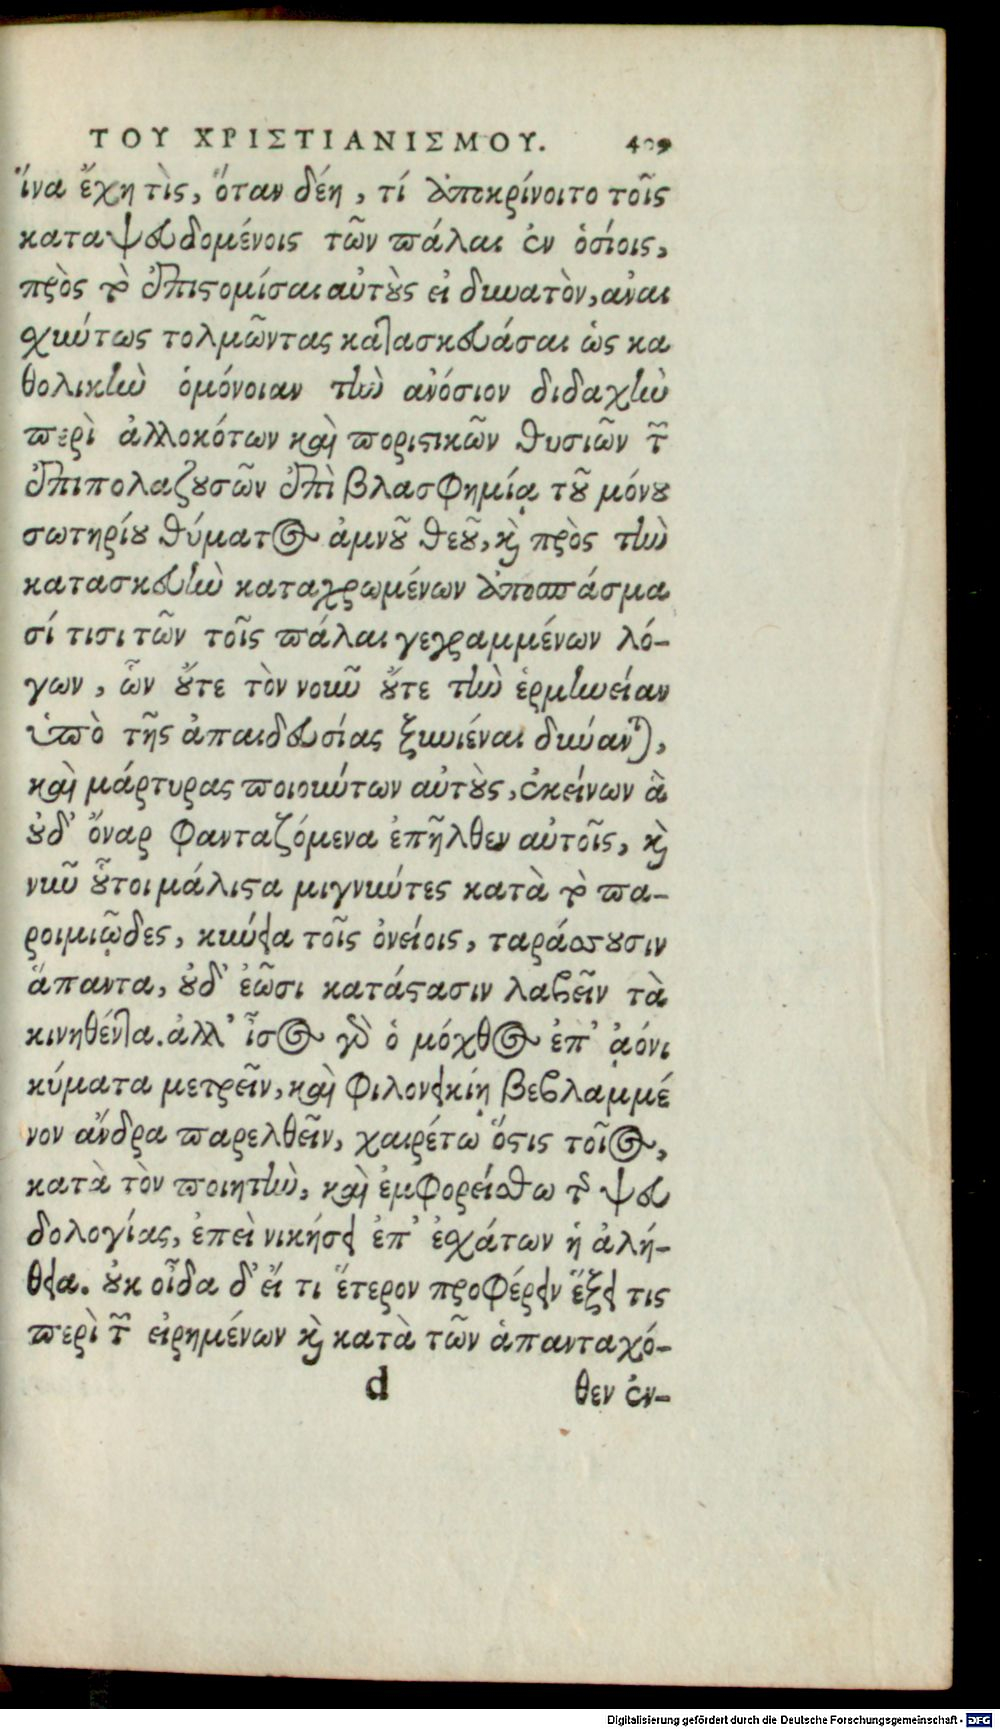 ΤΟΥ ΧΡΙΣΤΙΑΝΙΣΜΟΥ. 409
ἵνα ἔχῃ τὶς, ὅταν δέῃ, τί ἀποκρίνοιτο τοῖς
καταψευδομένοις τῶν πάλαι ἐν ὁσίοις,
πρὸς τὸ ἐπιστομίσαι αὐτοὺς εἰ δυνατὸν, αναι
χύντως τολμῶντας κατασκευάσαι ὡς κα
θολικὴν ὁμόνοιαν τὴν ἀνόσιον διδαχὴν
περὶ ἀλλοκότων καὶ ποριστικῶν θυσιῶν τῶν
ἐπιπολαζουσῶν ἐπὶ βλασφημίᾳ τοῦ μόνου
σωτηρίου θύματος ἀμνοῦ θεοῦ, καὶ πρὸς τὴν
κατασκευὴν καταχρωμένων ἀποσπάσμα
σί τισι τῶν τοῖς πάλαι γεγραμμένων λό-
γων, ὧν οὔτε τὸν νοῦν οὔτε τὴν ἑρμηνείαν
ὑπὸ τῆς ἀπαιδευσίας ξυνιέναι δύνανται,
καὶ μάρτυρας ποιούντων αὐτοὺς, ἐκείνων ἃ
οὐδ' ὄναρ φανταζόμενα ἐπῆλθεν αὐτοῖς, καὶ
νῦν οὗτοι μάλιστα μιγνύντες κατὰ τὸ πα-
ροιμιῶδες, κύνεια τοῖς ὀνείοις, ταράσσουσιν
ἅπαντα, οὐδ' ἐῶσι κατάστασιν λαβεῖν τὰ
κινηθέντα. ἀλλ' ἶσος γὰρ ὁ μόχθος ἐπ' ᾀόνι
κύματα μετρεῖν, καὶ φιλονεικίῃ βεβλαμμέ
νον ἄνδρα παρελθεῖν, χαιρέτω ὅστις τοῖος,
κατὰ τὸν ποιητὴν, καὶ ἐμφορείσθω τῆς ψευ
δολογίας, ἐπεὶ νικήσει ἐπ' ἐσχάτων ἡ ἀλή-
θεια. οὐκ οἶδα δ' εἴ τι ἕτερον προφέρειν ἕξει τις
περὶ τῶν εἰρημένων καὶ κατὰ τῶν ἁπανταχό-
d θεν ἐν-
Digitalisierung gefördert durch die Deutsche Forschungsgemeinschaft - DFG